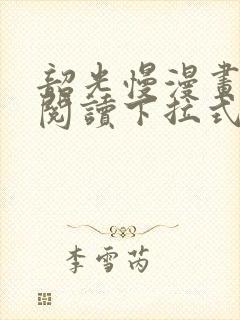 韶光慢漫畫
閱讀下拉式
李雪芮